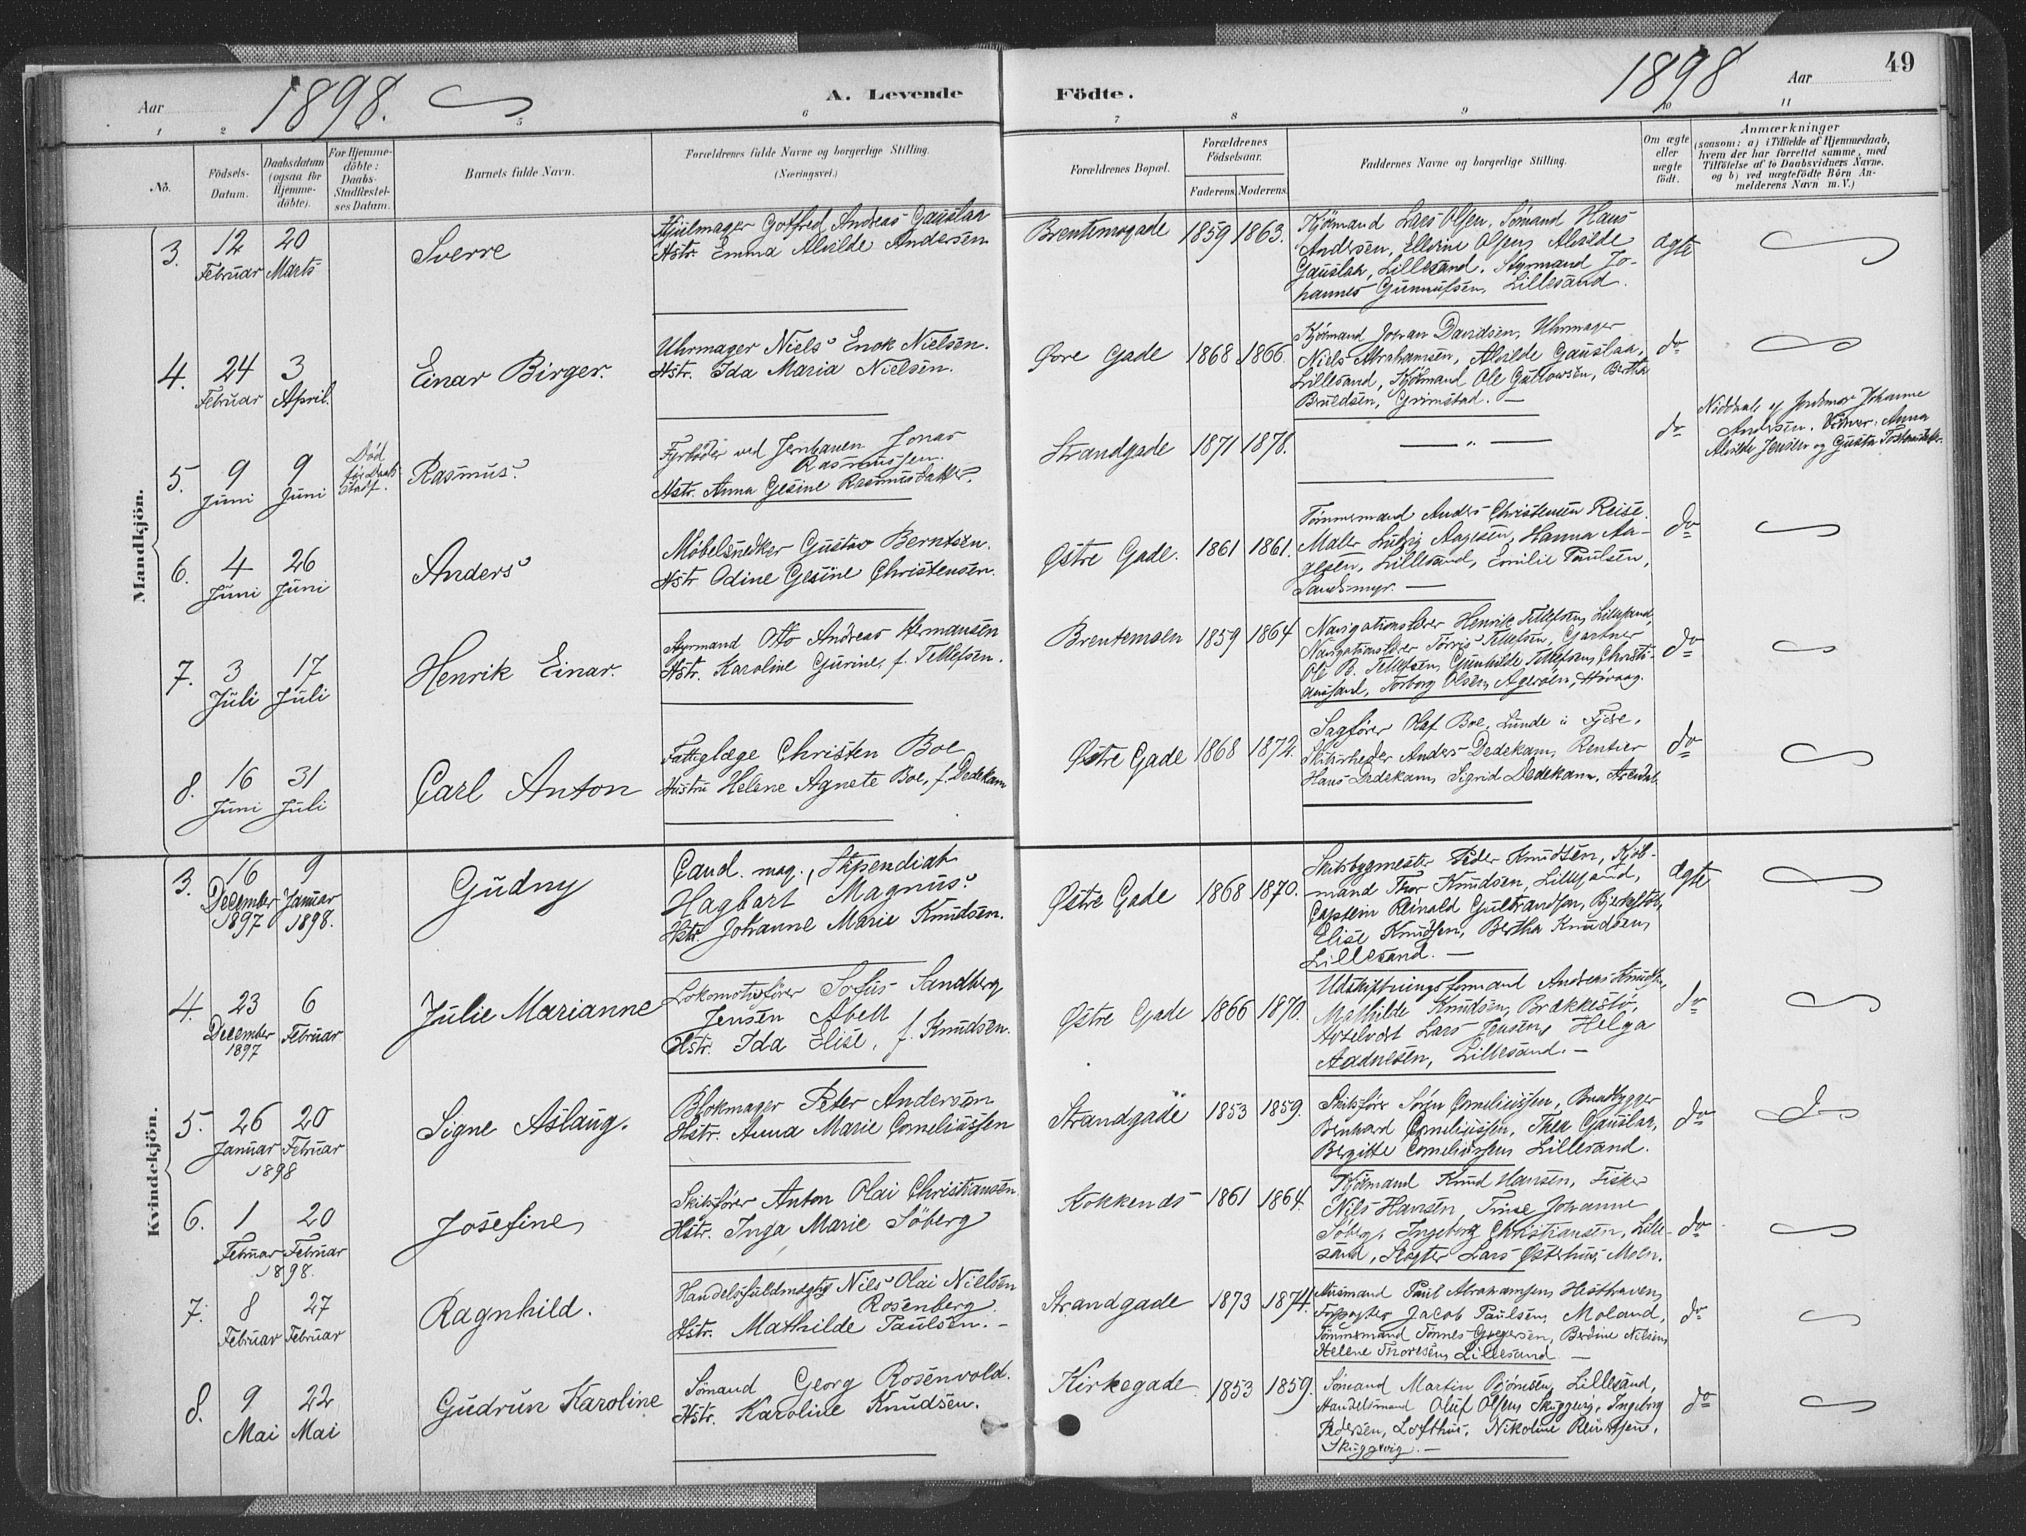 1898.
1898
49
Aar
A. Levende
Födte.
Aar
1
2
5
6
7
8
9
10
11
No.
Födsels-
Datum.
Daabsdatum
(ogsaa for
Hjemme-
döbte).
For Hjemme-
döbte:
Daabs-
Stadfæstel-
ses Datum.
Barnets fulde Navn.
Forældrenes fulde Navne og borgerlige Stilling.
(Næringsvei.)
Forældrenes Bopæl.
Forældrenes
Födselsaar.
Faderens.
Moderens.
Faddernes Navne og borgerlige Stilling.
Om ægte
eller
uægte
födt.
Anmærkninger
(saasom: a) i Tilfælde af Hjemmedaab,
hvem der har forrettet samme, med
Tilföielse af to Daabsvidners Navne.
og b) ved uægtefödte Börn An-
melderens Navn m. V.)
Mandkjön.
3.
12
Februar
20
Marts
Sverre
Hjulmager Gotfred Andreas Gauslaa
Hstr. Emma Alvilde Andersen
Brentemogade
1859
1863.
Kjöbmand Lars Olsen, Sömand Hans
Andersen, Ellevine Olsen, Alvilde
Gauslaa, Lillesand. Styrmand Jo-
hannes Gunnufsen, Lillesand.
ægte
4.
24
Februar
3
April.
Einar Birger.
Uhrmager Niels Enok Nielsen.
Hstr. Ida Maria Nielsen.
Övre Gade
1868
1866.
Kjöbmand Johan Davidsen, Uhrmager
Niels Abrahamsen, Alvilde Gauslaa,
Lillesand, Kjöbmand Ole Guttowsen, Bertha
Bruedsen, Grimstad. —
do
5.
9
Juni
9
Juni
Död
för Daabs
Stadf.
Rasmus
Fyrböder ved Jernbanen Jonas
Rasmussen.
Hstr. Anna Gesine Rasmusdatter.
Strandgade
1871
1878.
— " —
do
Nöddaab af Jordmor Johanne
Andersen. Vidner: Anna
Alvilde Jensen og Gusta
6.
4
Juni
26
Juni
Anders
Möbelsnedker Gustav Berntsen.
Hstr. Odine Gesine Christensen.
Östre Gade.
1861
1861.
Tömmermand Anders Christensen Reise.
Maler Ludvig Aagesen, Hanna Aa-
gesen, Lillesand, Emilie Paulsen,
Sandsmyr. —
do
7.
3
Juli
17
Juli
Henrik Einar.
Styrmand Otto Andreas Hermansen
Hstr. Karoline Gurine, f. Tellefsen.
Brentemoen
1859
1864
Navigationslærer Henrik Tellefsen, Lillesand,
Navigationslærer Torris Tellefsen, Gartner
Ole B. Tellefsen, Gunhilde Tellefsen, Christi-
ansand, Torborg Olsen, Ageröen, Hövaag.
do
8.
16
Juni
31
Juli
Carl Anton
Fattiglæge Christen Boe
Hustru Helene Agnete Boe, f. Dedekam
Östre Gade
1868
1872.
Sagförer Olaf Boe, Lunde i Fjære,
Skibsrheder Anders Dedekam, Rentier
Hans Dedekam, Sigrid Dedekam, Arendal.
do
Kvindekjön.
3.
16
December
1897
9
Januar
1898.
Gudny
Cand. mag., Stipendiat
Hagbart Magnus
Hstr. Johanne Marie Knudsen.
Östre Gade
1868
1870.
Skibsbygmester Peder Knudsen, Kjöb-
mand Thor Knudsen, Lillesand,
Captein Reinald Gultrandsen,
Elise Knudsen, Bertha Knudsen,
Lillesand. —
ægte
4.
23
December
1897
6
Februar
Julie Marianne
Lokomotivförer Sofus Sandberg
Jensen Abell
Hstr. Ida Elise, f. Knudsen.
Östre Gade
1866
1870.
Udskiftningsformand Andreas Knudsen,
Mathilde Knudsen, Brækkestö,
Lars Jensen, Helga
Aadnesen, Lillesand. —
do
5.
26
Januar
1898
20
Februar
Signe Aslaug.
Blokmager Peter Andersen
Hstr. Anna Marie Corneliussen
Strandgade
1853
1859.
Skibsförer Sören Corneliussen,
Bernhard Corneliussen, Thea Gauslaa,
Bergitte Corneliussen, Lillesand.
do
6.
1
Februar
1898.
20
Februar
Josefine
Skibsförer Anton Olai Christiansen
Hstr. Inga Marie Söberg
Kokkenes
1861
1864.
Kjöbmand Knud Hansen, Fisker
Nils Hansen, Trine Johanne
Söberg, Ingeborg Christiansen, Lille-
sand, Slagter Lars Österhus, Moen.
do
7.
8
Februar
27
Februar
Ragnhild.
Handelsfuldmægtig Nils Olai Nielsen
Rosenberg.
Hstr. Mathilde Paulsen. —
Strandgade
1873
1874.
Husmand Paul Abrahamsen, Hæsthaven,
Jacob Paulsen, Moland,
Tömmermand Tönnes Gregersen, Berdine Nilsen,
Helene Thorsen, Lillesand —
do
8.
9
Mai
22
Mai
Gudrun Karoline
Sömand Georg Rosenvold.
Hstr. Karoline Knudsen.
Kirkegade
1853
1859.
Sömand Martin Björnsen, Lillesand,
Handelsmand Oluf Olsen, Skuggevig, Ingeborg
Pedersen, Lofthus, Nikoline Reiersen,
Skuggevig. —
do